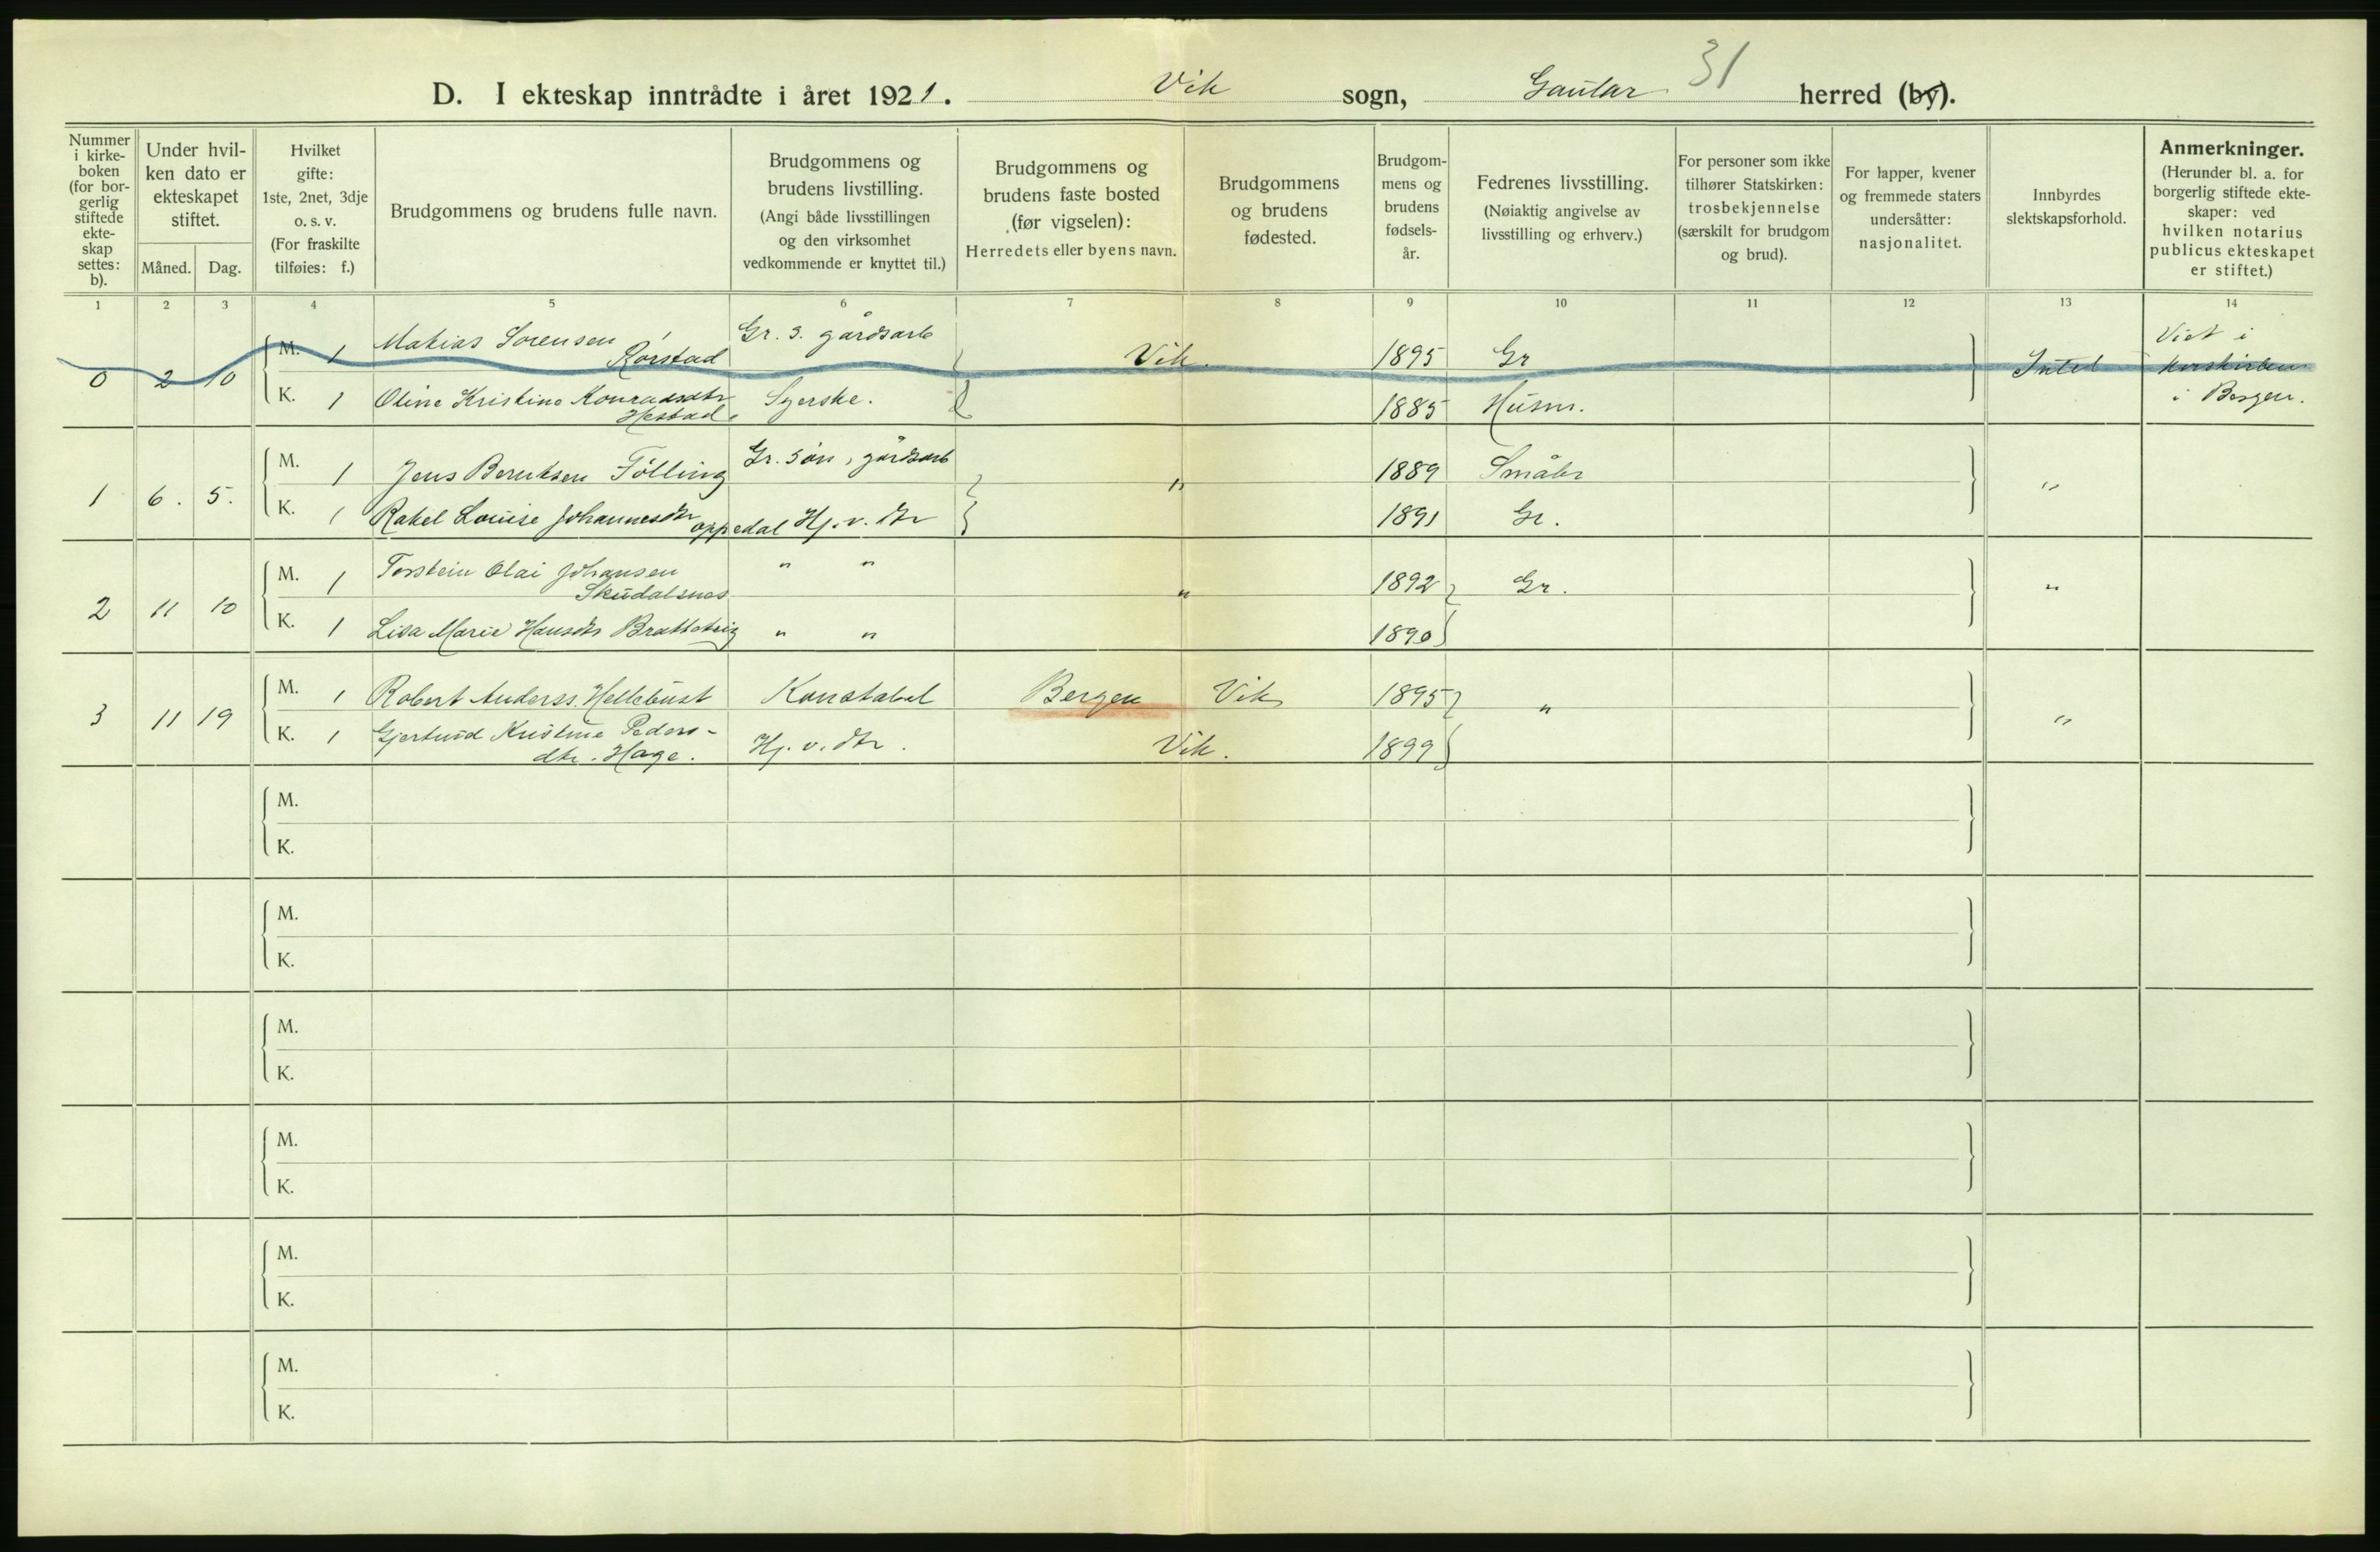 31
D. I ekteskap inntrådte i året 1921. Vik sogn, Gaular herred (by).
Nummer i kirkeboken (for borgerlig stiftede ekteskap settes: b).
Under hvilken dato er ekteskapet stiftet.
Måned. Dag.
Hvilket gifte: 1ste, 2net, 3dje o. s. v. (For fraskilte tilføies: f.)
Brudgommens og brudens fulle navn.
Brudgommens og brudens livstilling. (Angi både livsstillingen og den virksomhet vedkommende er knyttet til.)
Brudgommens og brudens faste bosted (før vigselen): Herredets eller byens navn.
Brudgommens og brudens fødested.
Brudgommens og brudens fødsels-år.
Fedrenes livsstilling. (Nøiaktig angivelse av livsstilling og erhverv.)
For personer som ikke tilhører Statskirken: trosbekjennelse (særskilt for brudgom og brud).
For lapper, kvener og fremmede staters undersåtter: nasjonalitet.
Innbyrdes slektskapsforhold.
Anmerkninger. (Herunder bl. a. for borgerlig stiftede ekteskaper: ved hvilken notarius publicus ekteskapet er stiftet.)
1 2 3 4 5 6 7 8 9 10 11 12 13 14
0 2 10 M. 1 Matias Sørensen Rørstad Gr. s. gårdsarb Vik. 1895 Gr Intet Viet i Korskirken i Bergen.
K. 1 Oline Kristine Konradsdtr Hestad. Syerske. 1885 Husm.
1 6. 5. M. 1 Jens Berentsen Tölling Gr. søn, gårdsarb " 1889 Småbr "
K. 1 Rakel Louise Johannesdtr Oppedal Hj. v. dtr 1891 Gr.
2 11 10 M. 1 Torstein Olai Johansen Skudalsnes " " " 1892 Gr. "
K. 1 Lisa Marie Hansdtr " " 1890
3 11 19 M. 1 Robert Anderss. Hellebust Konstabel Bergen Vik 1895 " "
K. 1 Gjertrud Kristine Pedersdtr. Hage. Hj. v. dtr. Vik. 1899
M.
K.
M.
K.
M.
K.
M.
K.
M.
K.
M.
K.